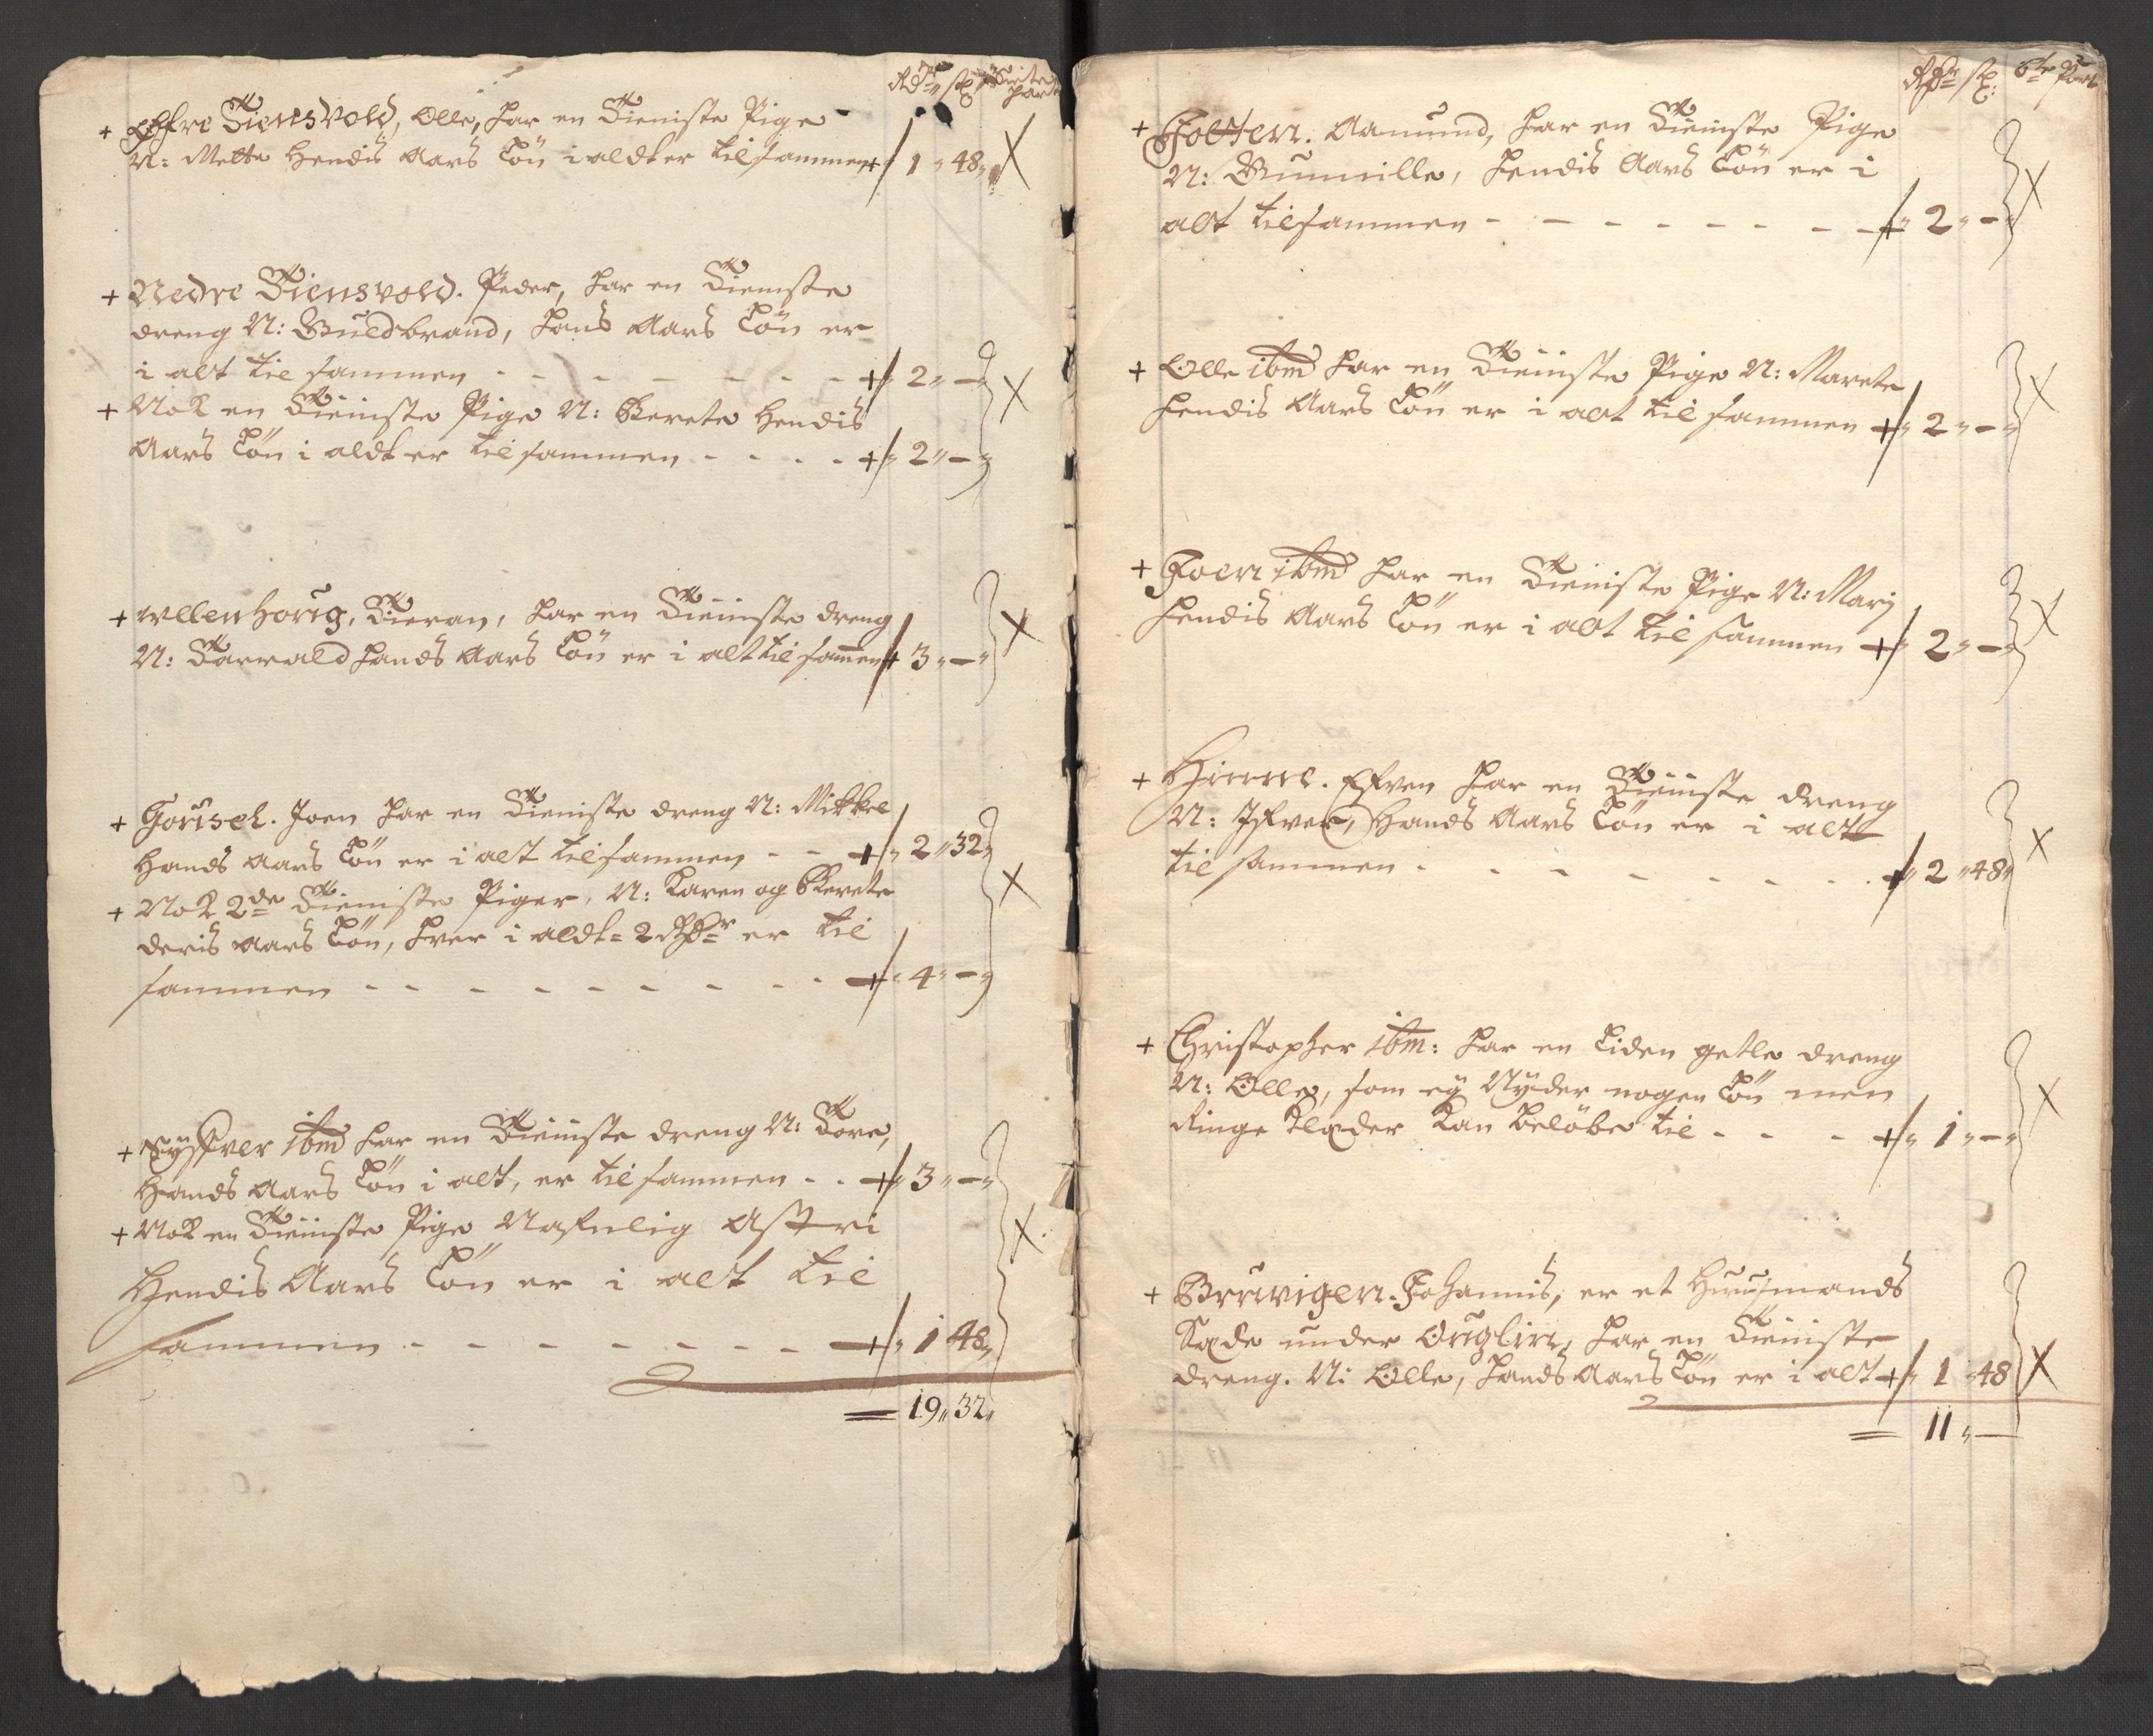 Rdr sk 6te part
+ Øfre Tiensvold, Olle, har en Tieniste Pige
N: Mette Hendis Aars Løn i aldt er tilsammen + 1 " 48 " X
+ Nedre Tiensvold. Peder, har en Tieniste
dreng N: Guldbrand, Hans Aars Løn er
i alt til sammen - - - - - - - + " 2 " — " X
+ Nok en Tieniste Pige N: Berete Hendis
Aars Løn i aldt er tilsammen - - - - + " 2 " — "
+ Wllenhorig, Tieran, har en Tieniste dreng X
N: Tarrald Hands Aars Løn er i alt til sammen + 3 " — "
+ Gorisel. Joen har en Tieniste dreng N: Mikkel
Hands Aars Løn er i alt tilsammen - - + " 2 " 32 "
+ Nok 2de Tieniste Piger, N: Karen og Berete X
deris Aars Løn, hver i aldt = 2 Rdr er til
sammen - - - - - - - - - + " 4 " — "
+ Sÿfver ibm har en Tieniste dreng N: Tore,
Hands Aars Løn i alt, er til sammen - - + " 3 " — "
+ Nok en Tieniste Pige Nafnlig Astri X
Hendis Aars Løn er i alt til
sammen - - - - - - - - + " 1 48 "
= 19 " 32 "
Rdr sk: 6te Part
+ Folsten. Aamund, har en Tieniste Pige
N: Gunnille, hendis Aars Løn er i X
alt tilsammen - - - - - - - - + " 2 " — "
+ Olle ibm har en Tieniste Pige N: Marete X
hendis Aars Løn er i alt til sammen + " 2 " — "
+ Joen ibm har en Tieniste Pige N: Marj X
hendis Aars Løn er i alt til sammen + " 2 " — "
+ Hinne. Efven har en Tieniste dreng
N: Ifver, Hands Aars Løn er i alt X
til sammen - - - - - - - - + " 2 " 48 "
+ Christopher ibm: har en Liden getle dreng
N: Olle, som eÿ Nyder nogen Løn men X
Ringe klæder kan beløbe til - - - + " 1 " — "
+ Brrwigen. Johannis, er et Huusmands
Sæde under Ouglin, har en Tieniste
dreng. N: Olle, hands Aars Løn er i alt + " 1 48 X
= 11 " —